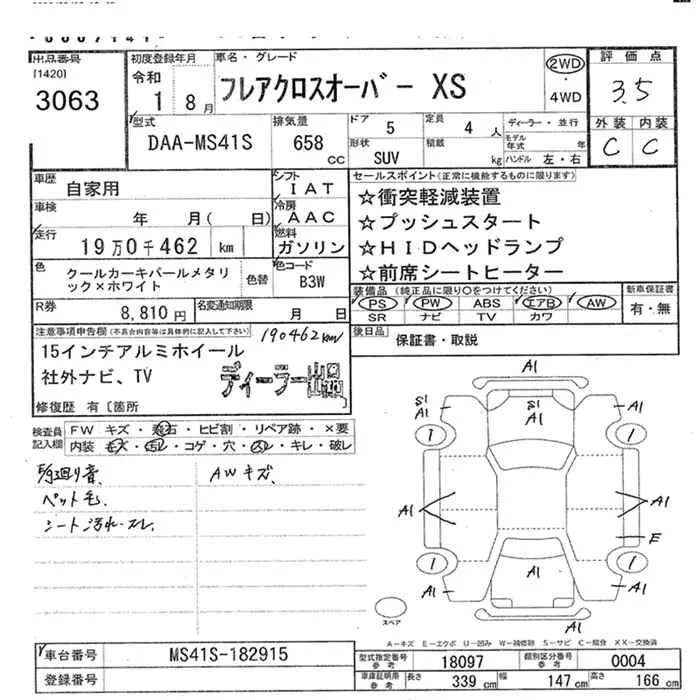 出品番号
[1420]
3063
初度登録年月
令和
1 8月
車名・グレード
フレアクロスオーバー XS
2WD
・
4WD
評価点
3.5
外装 内装
C C
型式
DAA-MS41S
排気量
658
CC
ドア
5
定員
4 人
形状
SUV
積載
kg
ディーラー・並行
モデル年式 年
ハンドル 左・右
車歴
自家用
車検
年 月( 日)
走行
19万0千462 km
シフト
IAT
冷房
AAC
燃料
ガソリン
色
クールカーキパールメタリ
ック×ホワイト
色替
色コード
B3W
R券
8,810 円
名変通知期限
月 日
セールスポイント(正常に機能するものに限ります)
☆衝突軽減装置
☆プッシュスタート
☆HIDヘッドランプ
☆前席シートヒーター
装備品(純正品に限り○をつけてください)
PS PW ABS エアB AW
SR ナビ TV カワ
新車保証書
有・無
後日品
保証書・取説
注意事項申告欄(不具合内容等は具体的に記入して下さい)
190462km
15インチアルミホイール
社外ナビ、TV
ディーラー出品
修復歴 有〔箇所
検査員
記入欄
FW キズ・飛石・ヒビ割・リペア跡・×要
内装 キズ・汚れ・コゲ・穴・スレ・キレ・破レ
廻り音
AWキズ
ペット毛
シート汚れ・スレ
A1
S1
A1
S1
A1
S1
A1
1
1
A1
A1
E
1
A1
1
A1
A1
A1
スペア
A-キズ E-エクボ U-凹み W-補修跡 S-サビ C-腐食 XX-交換済
車台番号
MS41S-182915
登録番号
型式指定番号
参考
18097
類別区分番号
参考
0004
車庫証明用
参考
長さ
339 cm
幅
147 cm
高さ
166 cm